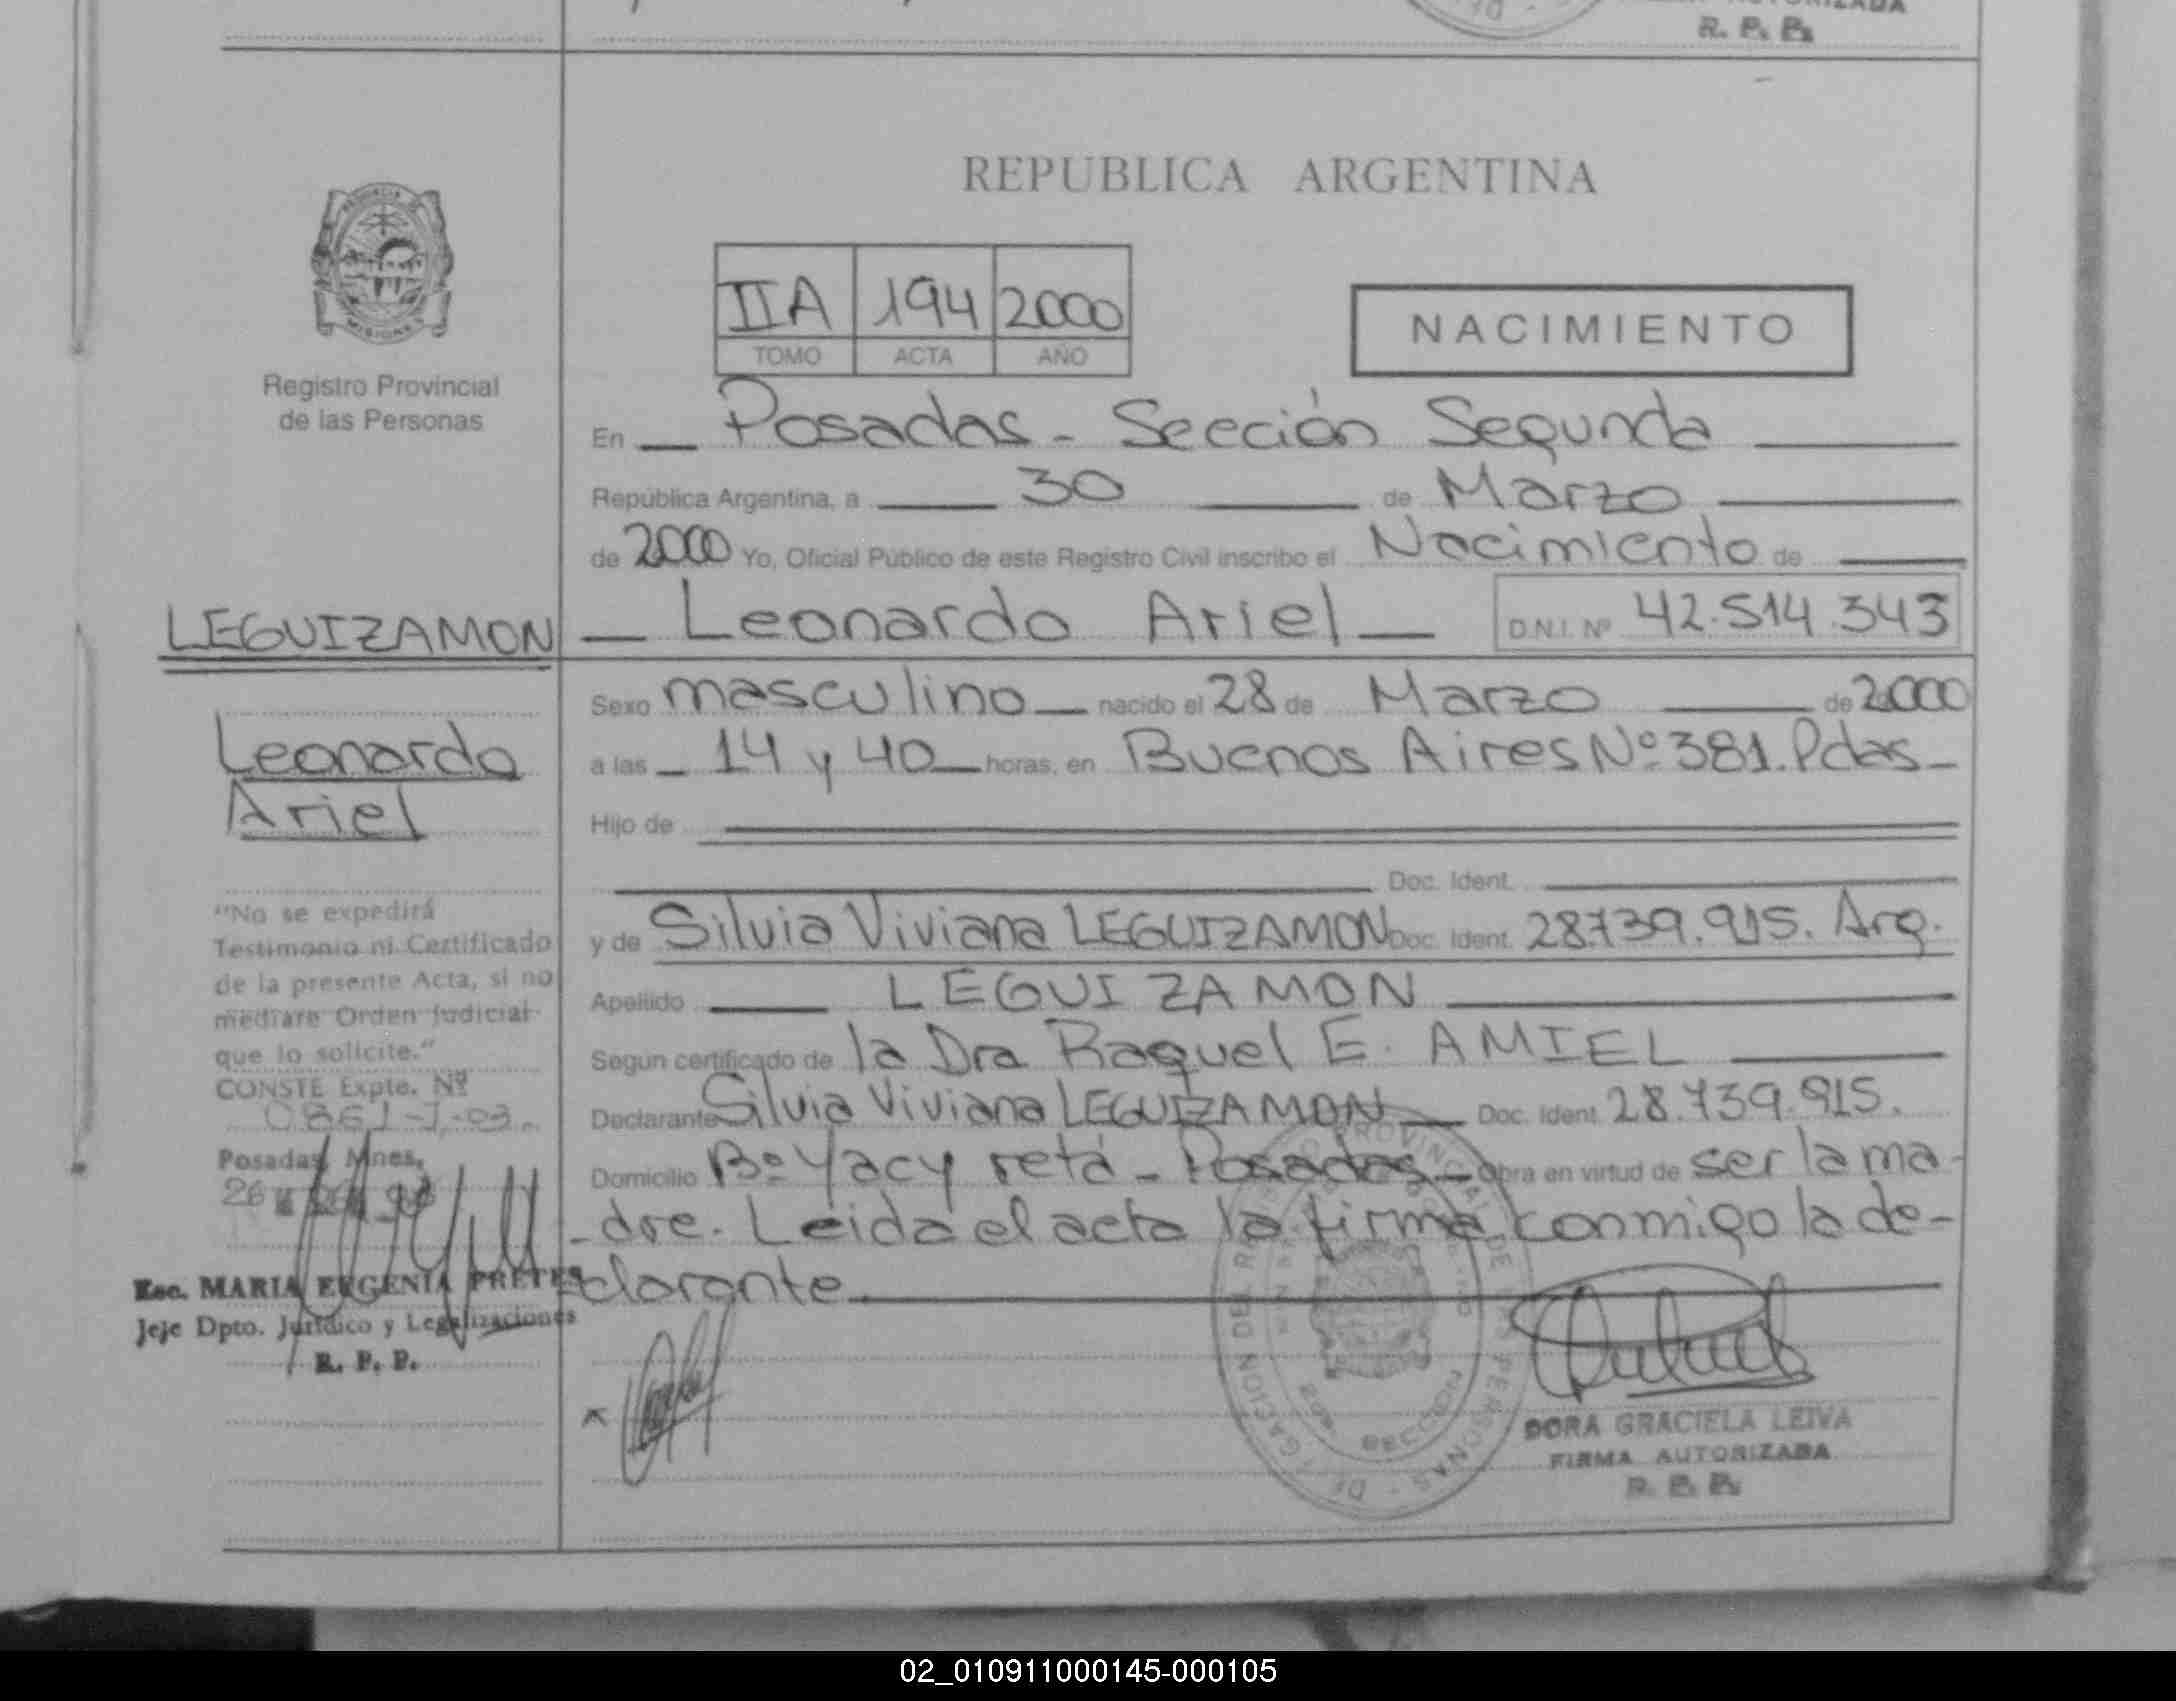 R. P. P.
REPUBLICA ARGENTINA
MISIONES
Registro Provincial
de las Personas
IIA 194 2000
TOMO ACTA AÑO
NACIMIENTO
En Posadas - Sección Segunda
República Argentina, a 30 de Marzo
de 2000 Yo, Oficial Público de este Registro Civil inscribo el Nacimiento de
LEGUIZAMON Leonardo Ariel D.N.I. Nº 42.514.343
Sexo masculino nacido el 28 de Marzo de 2000
Leonardo
Ariel
a las 14 y 40 horas, en Buenos Aires Nº 381. Pdas
Hijo de
Doc. Ident.
y de Silvia Viviana LEGUIZAMON Doc. Ident. 28.739.915. Arg.
Apellido LEGUIZAMON
Según certificado de la Dra Raquel E. AMIEL
Declarante Silvia Viviana LEGUIZAMON Doc. Ident. 28.739.915.
Domicilio Bº Yacyretá - Posadas - Obra en virtud de ser la ma-
-dre. Leida el acta la firma conmigo la de-
clarante
"No se expedirá
Testimonio ni Certificado
de la presente Acta, si no
mediare Orden Judicial
que lo solicite."
CONSTE Expte. Nº
Posadas, Mnes,
Esc. MARIA EUGENIA PRETES
Jeje Dpto. Jurídico y Legalizaciones
R. P. P.
DORA GRACIELA LEIVA
FIRMA AUTORIZADA
R. P. P.
02_010911000145-000105